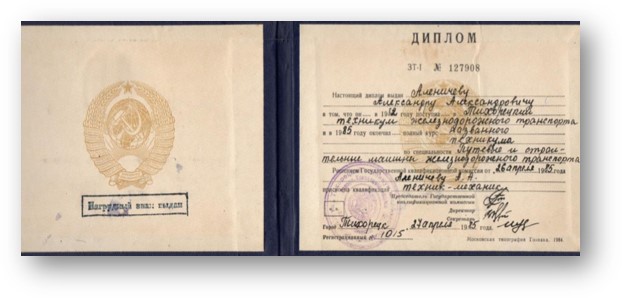 Нагрудный знак выдан
ДИПЛОМ
ЗТ-I № 127908
Настоящий диплом выдан Аленичеву
Александру Александровичу
в том, что он в 19 году поступил в Тихорецкий
техникум железнодорожного транспорта
и в 1985 году окончил полный курс названного
техникума
по специальности Путевые и строи-
тельные машины железнодорожного транспорта
Решением Государственной квалификационной комиссии от 26 апреля 1985 г.
Аленичеву А. А.
присвоена квалификация техник-механик
Председатель Государственной
квалификационной комиссии
Директор
Секретарь
Город Тихорецк, 27 апреля 1985 года.
Регистрационный № 1015.
Московская типография Гознака. 1984.